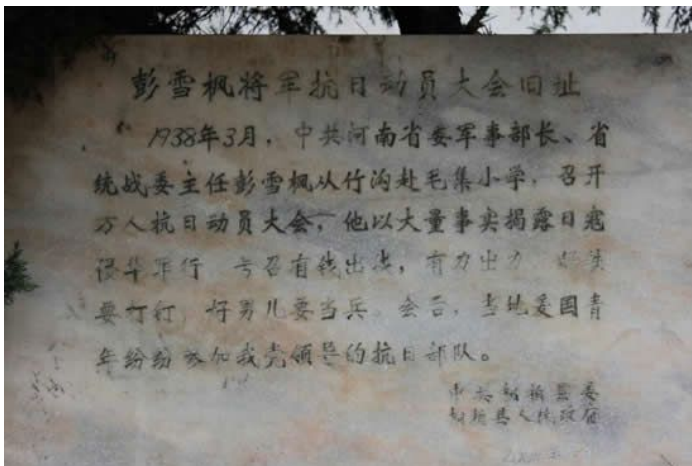 彭雪枫将军抗日动员大会旧址
1938年3月，中共河南省委军事部长、省
统战委主任彭雪枫从竹沟赴毛集小学，召开
万人抗日动员大会，他以大量事实揭露日寇
侵华罪行 号召有钱出钱，有力出力 好铁
要打钉 好男儿要当兵 会后，当地爱国青
年纷纷参加我党领导的抗日部队。
中共桐柏县委
桐柏县人民政府